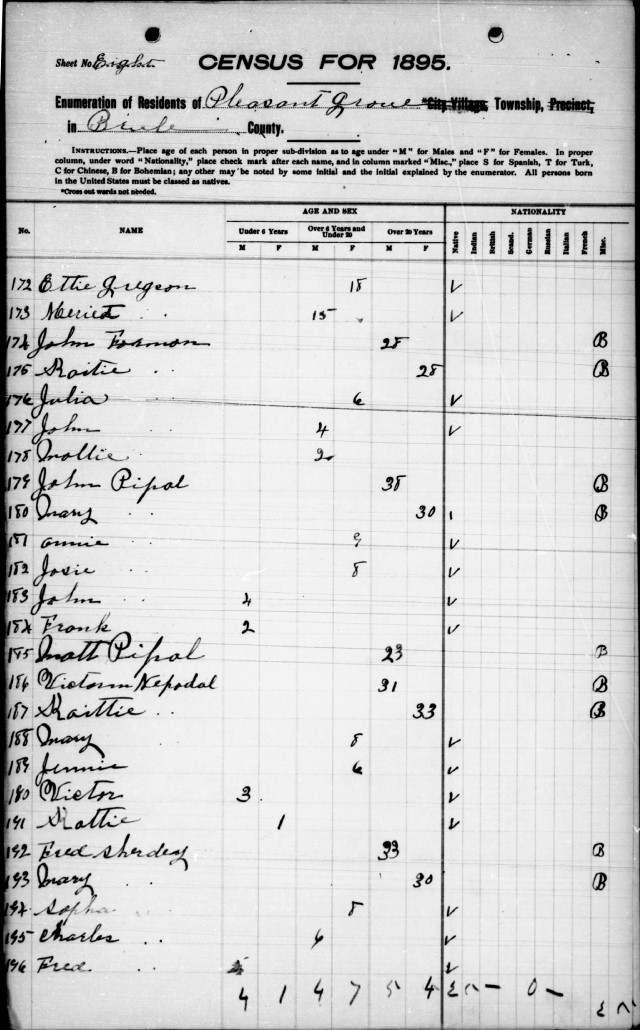 Sheet No. Eight CENSUS FOR 1895.
Enumeration of Residents of Pleasant Grove *City Village, Township, Precinct,
in County.
INSTRUCTIONS.—Place age of each person in proper sub-division as to age under "M" for Males and "F" for Females. In proper
column, under word "Nationality," place check mark after each name, and in column marked "Misc," place S for Spanish, T for Turk,
C for Chinese, B for Bohemian; any other may be noted by some initial and the initial explained by the enumerator. All persons born
in the United States must be classed as natives.
*Cross out words not needed.
AGE AND SEX NATIONALITY
No. NAME Under 6 Years Over 6 Years and Under 20 Over 20 Years Native Indian British Scand. German Russian Italian French Misc.
M F M F M F
172 Ettie Gregson 18 ✓
173 15 ✓
174 John Formon 28 B
175 Kaitie 28 B
176 Julia 6 ✓
177 John 4 ✓
178 Mollie 2
179 John Pipal 38 B
180 Mary 30 B
181 Annie 9 ✓
182 Josie 8 ✓
183 John 4 ✓
184 Frank 2 ✓
185 Matt Pipal 23 B
186 Nepodal 31 B
187 Kaittie 33 B
188 Mary 8 ✓
189 Jennie 6 ✓
190 Victor 3 ✓
191 Kattie 1 ✓
192 Fred 33 B
193 Mary 30 B
194 Sopha 8 ✓
195 Charles 6 ✓
196 Fred ✓
4 1 4 7 5 4 0